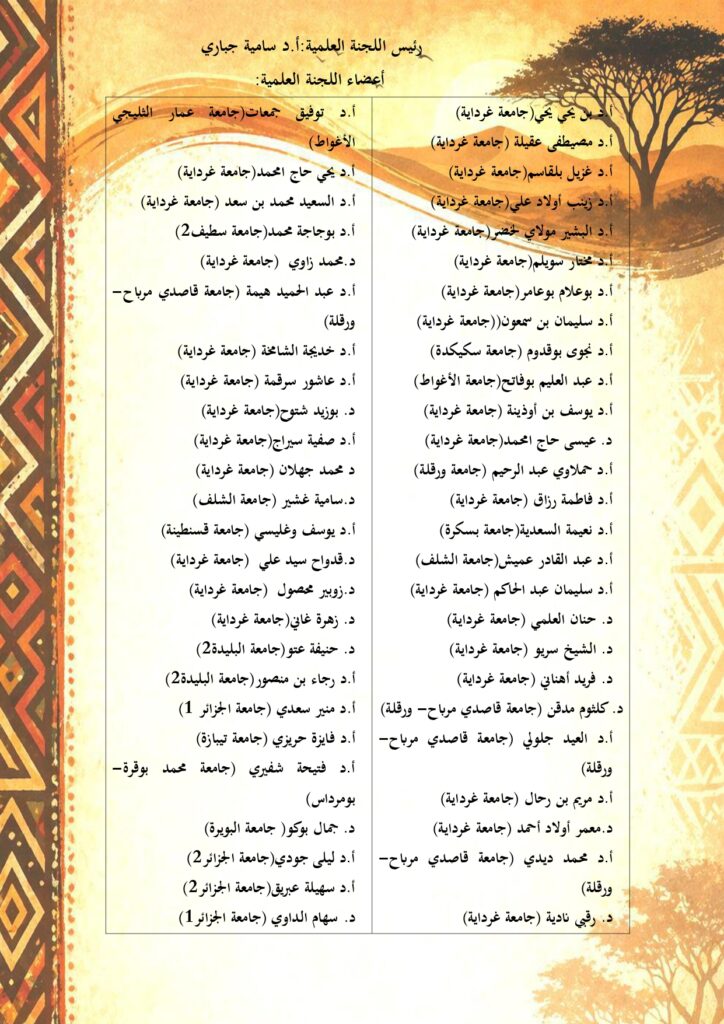 رئيس اللجنة العلمية:أ.د سامية جباري
أعضاء اللجنة العلمية:
أ.د بن يحي يحي(جامعة غرداية)
أ.د مصيطفى عقيلة (جامعة غرداية)
أ.د غزيل بلقاسم(جامعة غرداية)
أ.د زينب أولاد علي(جامعة غرداية)
أ.د البشير مولاي لخضر(جامعة غرداية)
أ.د مختار سويلم(جامعة غرداية)
أ.د بوعلام بوعامر(جامعة غرداية)
أ.د سليمان بن سمعون((جامعة غرداية)
أ.د نجوى بوقدوم (جامعة سكيكدة)
أ.د عبد العليم بوفاتح(جامعة الأغواط)
أ.د يوسف بن أوذينة (جامعة غرداية)
د. عيسى حاج امحمد(جامعة غرداية)
أ.د حملاوي عبد الرحيم (جامعة ورقلة)
أ.د فاطمة رزاق (جامعة غرداية)
أ.د نعيمة السعدية(جامعة بسكرة)
أ.د عبد القادر عميش(جامعة الشلف)
أ.د سليمان عبد الحاكم (جامعة غرداية)
د. حنان العلمي (جامعة غرداية)
د. الشيخ سريو (جامعة غرداية)
د. فريد أهناني (جامعة غرداية)
د. كلثوم مدقن (جامعة قاصدي مرباح- ورقلة)
أ.د العيد جلولي (جامعة قاصدي مرباح-
ورقلة)
أ.د مريم بن رحال (جامعة غرداية)
د.معمر أولاد أحمد (جامعة غرداية)
أ.د محمد ديدي (جامعة قاصدي مرباح-
ورقلة)
د. رقبي نادية (جامعة غرداية)
أ.د توفيق جمعات(جامعة عمار الثليجي
الأغواط)
أ.د يحي حاج امحمد(جامعة غرداية)
أ.د السعيد محمد بن سعد (جامعة غرداية)
أ.د بوجاجة محمد(جامعة سطيف2)
د.محمد زاوي (جامعة غرداية)
أ.د عبد الحميد هيمة (جامعة قاصدي مرباح-
ورقلة)
أ.د خديجة الشامخة (جامعة غرداية)
أ.د عاشور سرقمة (جامعة غرداية)
د. بوزيد شتوح(جامعة غرداية)
أ.د صفية سيراج(جامعة غرداية)
د محمد جهلان (جامعة غرداية)
د.سامية غشير (جامعة الشلف)
أ.د يوسف وغليسي (جامعة قسنطينة)
د.قدواح سيد علي (جامعة غرداية)
د.زوبير محصول (جامعة غرداية)
د. زهرة غاني(جامعة غرداية)
د. حنيفة عتو(جامعة البليدة2)
أ.د رجاء بن منصور(جامعة البليدة2)
أ.د منير سعدي (جامعة الجزائر 1)
أ.د فايزة حريزي (جامعة تيبازة)
أ.د فتيحة شفيري (جامعة محمد بوقرة-
بومرداس)
د. جمال بوكو( جامعة البويرة)
أ.د ليلى جودي(جامعة الجزائر2)
أ.د سهيلة عبريق(جامعة الجزائر2)
د. سهام الداوي (جامعة الجزائر1)